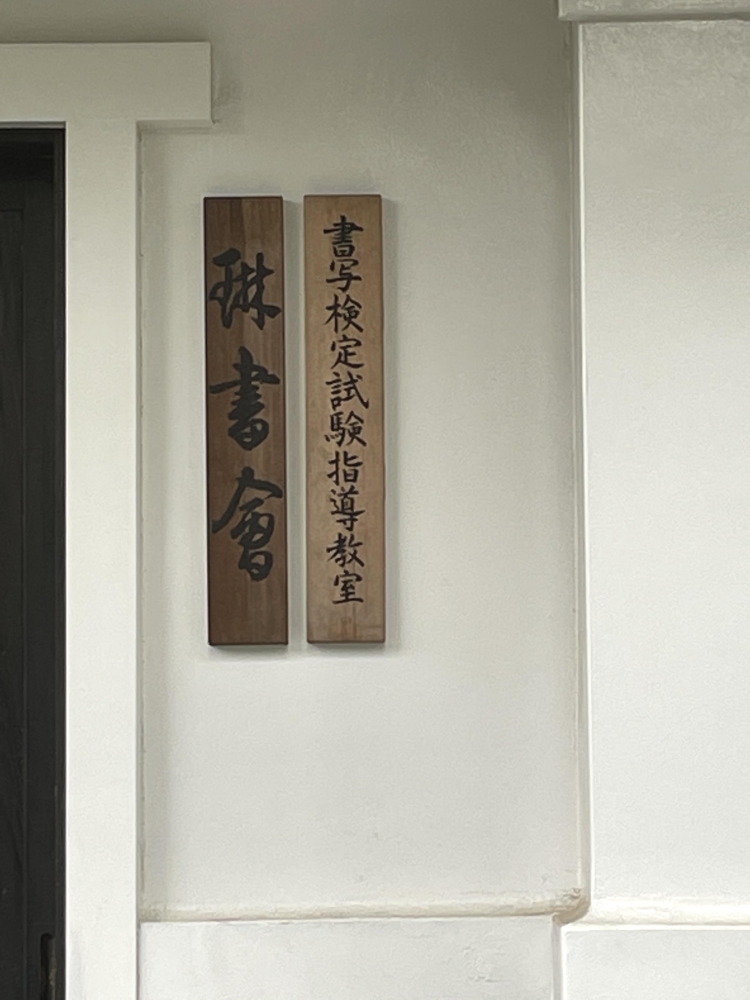 書写検定試験指導教室
琳書會